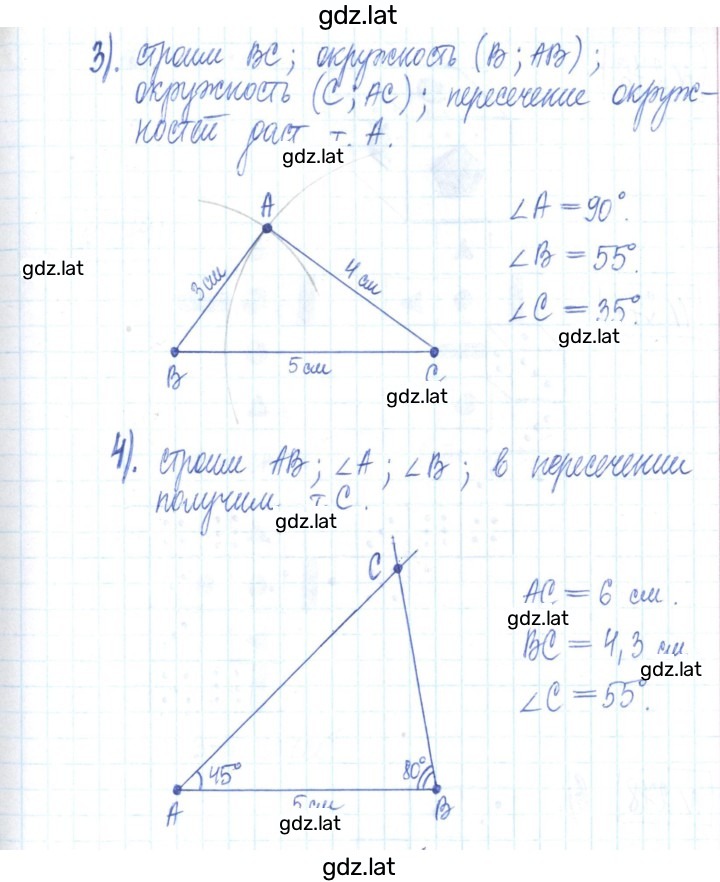 gdz.lat
3). строим BC; окружность (B; AB);
окружность (C; AC); пересечение окруж-
ностей даст т. A.
gdz.lat
A
∠A = 90°.
gdz.lat
3 см
4 см
∠B = 55°.
∠C = 35°.
gdz.lat
B
5 см
C
gdz.lat
4). строим AB; ∠A; ∠B; в пересечении
получим т. C.
gdz.lat
C
AC = 6 см.
gdz.lat
BC = 4,3 см
gdz.lat
∠C = 55°.
45°
80°
A
5 см
B
gdz.lat
gdz.lat